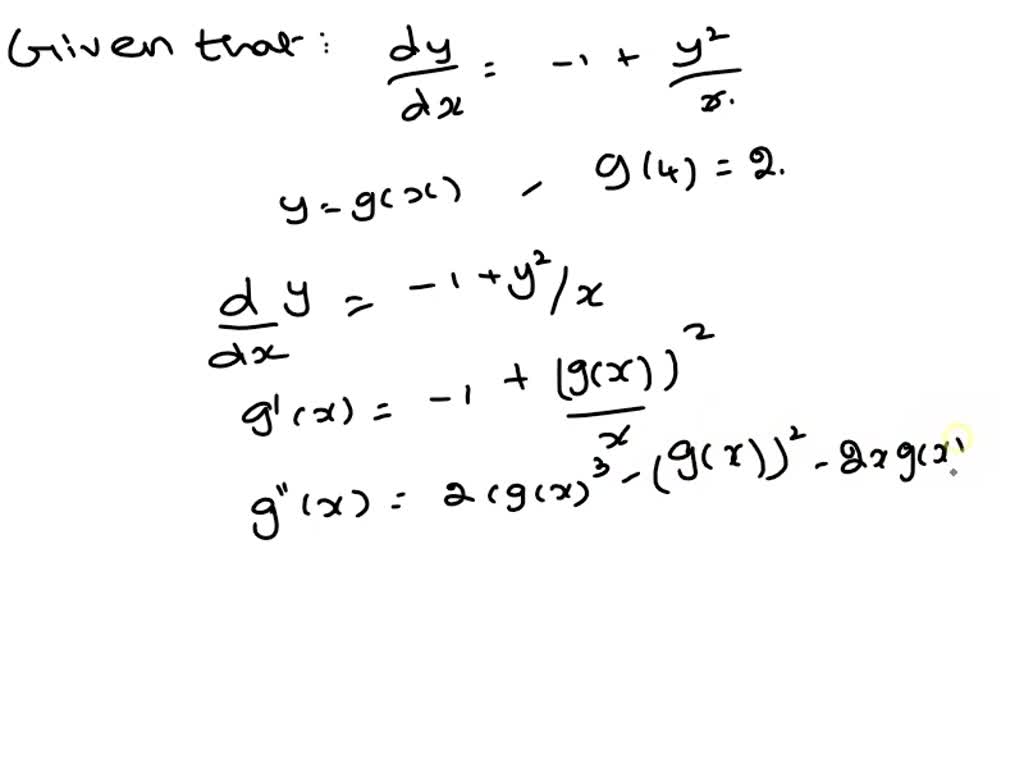 Given that: dy/dx = -1 + y²/x.
y = g(x) , g(4) = 2.
d/dx y = -1 + y²/x
g'(x) = -1 + (g(x))²/x
g''(x) = 2(g(x)³ - (g(x))² - 2x g(x)